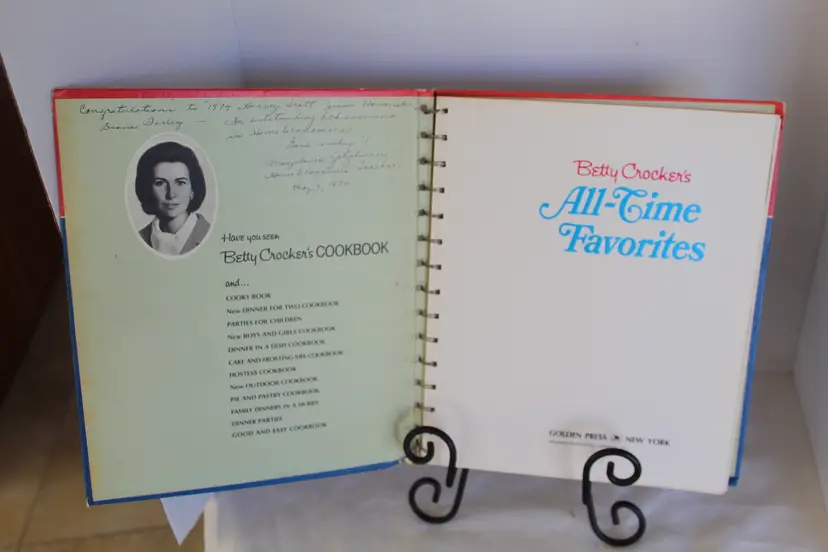 Congratulations to "1974 Harvey Scott Junior Homemaker
Diane Finley — for outstanding achievement
in Home Economics
Home Economics Teacher
May 7, 1974
Have you seen
Betty Crocker's COOKBOOK
and...
COOKY BOOK
New DINNER FOR TWO COOKBOOK
PARTIES FOR CHILDREN
New BOYS AND GIRLS COOKBOOK
DINNER IN A DISH COOKBOOK
CAKE AND FROSTING MIX COOKBOOK
HOSTESS COOKBOOK
New OUTDOOR COOKBOOK
PIE AND PASTRY COOKBOOK
FAMILY DINNERS IN A HURRY
DINNER PARTIES
GOOD AND EASY COOKBOOK
Betty Crocker's
All-Time
Favorites
GOLDEN PRESS NEW YORK